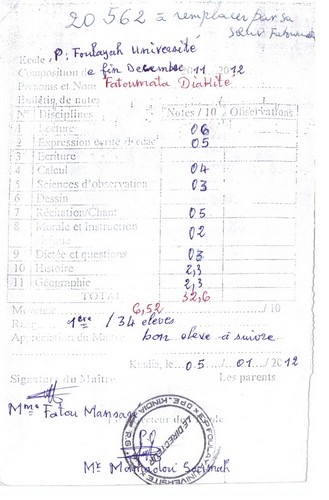 20 562 à remplacer par sa
sœur Fatoumata
Ecole P. Foulayah Université
Composition de fin Decembre 2011 2012
Prénoms et Nom Fatoumata Diallité
Bulletin de notes
N° Disciplines Notes / 10 Observations
1 Lecture 06
2 Expression écrite 05
3 Ecriture
4 Calcul 04
5 Sciences d'observation 03
6 Dessin
7 Récitation/Chant 05
8 Morale et Instruction 02
9 Dictée et questions 03
10 Histoire 2,3
11 Géographie 2,3
TOTAL 32,6
Moyenne 6,52 / 10
Rang 1ère / 34 élèves
Appréciation du Maître bon eleve à suivre
Kindia, le...05.../...01.../2012
Signature du Maître Les parents
Mme Fatou Mansa
Le Directeur de l'école
LE DIRECTEUR
Mr Mamadou Soumah